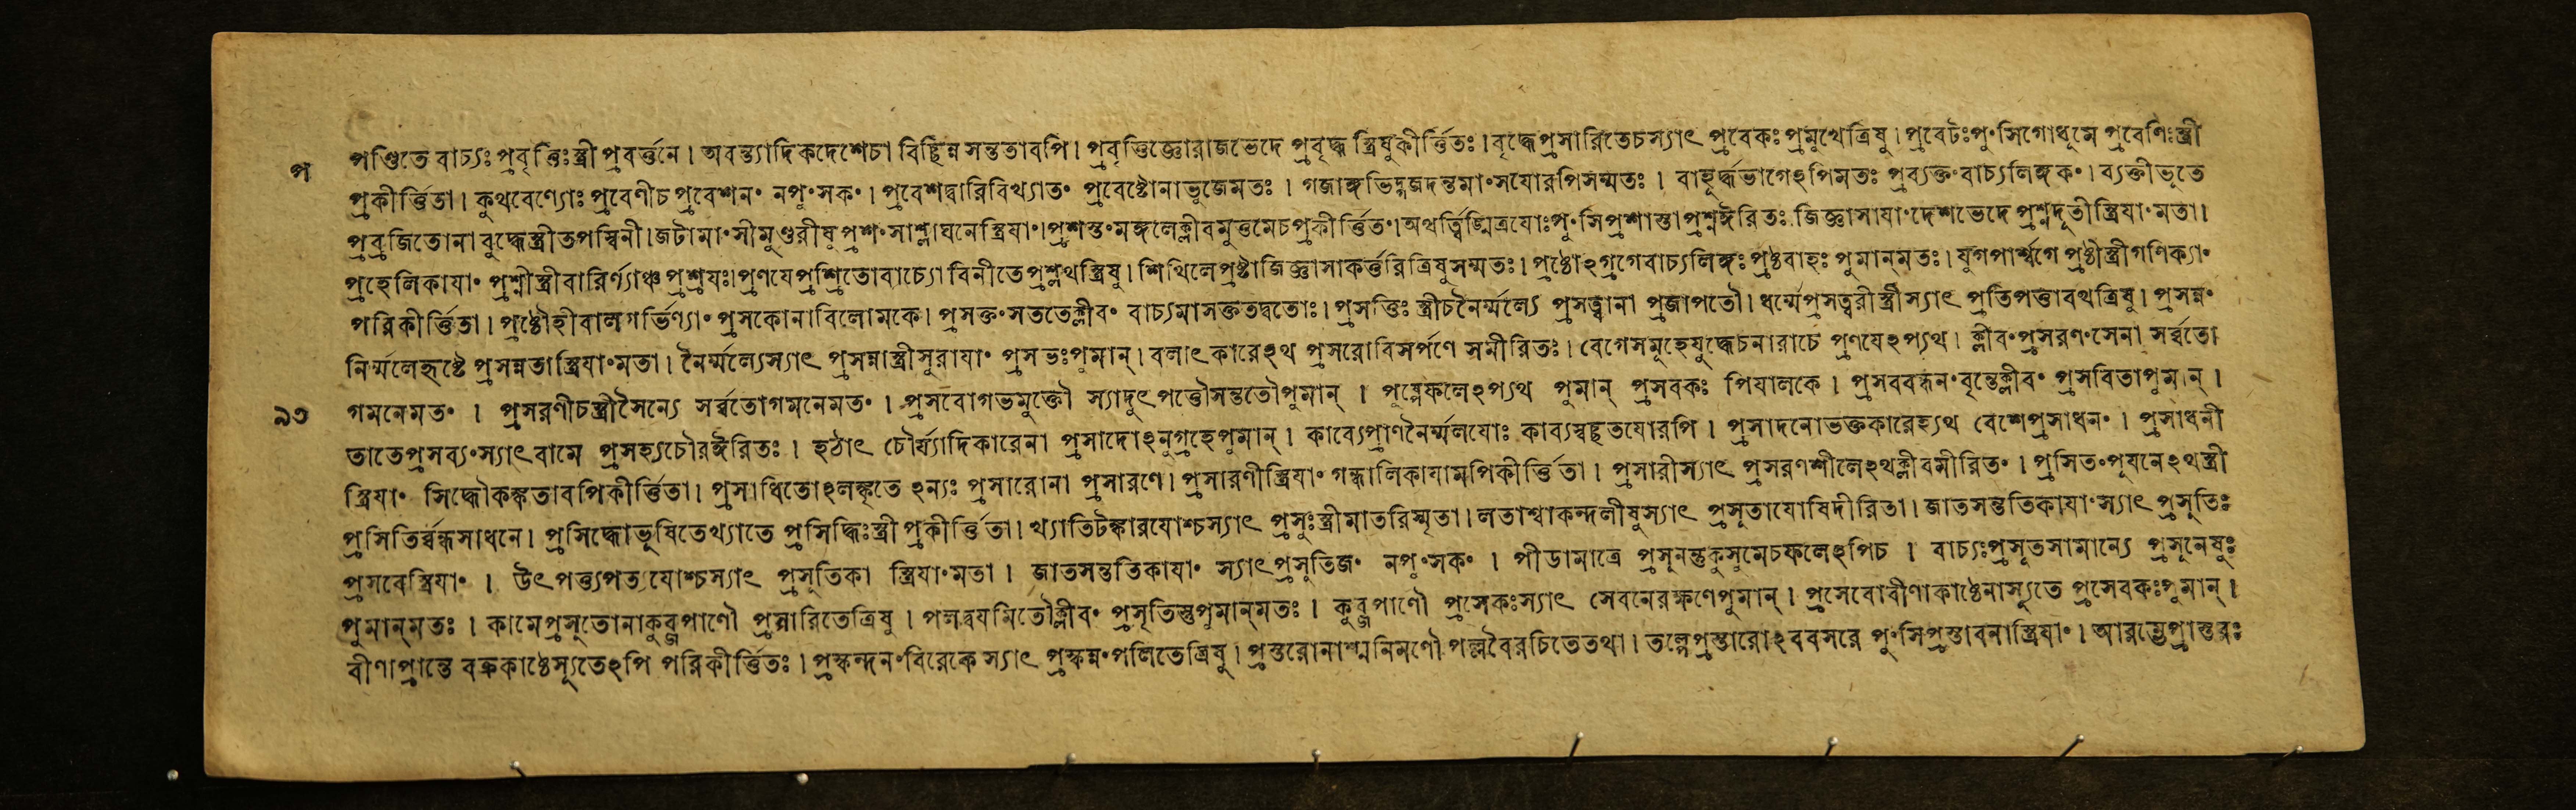 প পণ্ডিতে বাচ্যঃ প্রবৃত্তিঃস্ত্রী প্রবর্ত্তনে। অবন্ত্যাদিকদেশেচা বিচ্ছিন্ন সন্ততাবপি। প্রবৃত্তিজ্ঞোরাজভেদে প্রবৃদ্ধ স্ত্রিষুকীর্ত্তিতঃ। বৃদ্ধেপ্রসারিতেচস্যাৎ প্রবেকঃ প্রমুখেত্রিষু। প্রবেটঃপুংসিগোধূমে প্রবেণিঃস্ত্রী
প্রকীর্ত্তিতা। কুথবেণ্যোঃ প্রবেণীচ প্রবেশনং নপুংসকং। প্রবেশদ্বারিবিখ্যাতং প্রবেষ্টোনাভুজেমতঃ। গজাঙ্গভিদ্গজদন্তমাংসযোরপিসম্মতঃ। বাহূর্দ্ধভাগেঽপিমতঃ প্রব্যক্তংবাচ্যলিঙ্গকং। ব্যক্তীভূতে
প্রব্রজিতোনা বুদ্ধেস্ত্রীতপস্বিনী। জটামাংসীমুণ্ডরীষু প্রশংসাশ্লাঘনেস্ত্রিযাং। প্রশস্তংমঙ্গলেক্লীবমুত্তমেচপ্রকীর্ত্তিতং। অথর্ত্ত্বিঙ্মিত্রযোঃপুংসিপ্রশাস্তা প্রশ্নঈরিতঃ জিজ্ঞাসাযাংদেশভেদে প্রশ্নদূতীস্ত্রিযাংমতা।
প্রহেলিকাযাং প্রশ্নীস্ত্রীবারিপর্ণ্যাঞ্চ প্রশ্রযঃ। প্রণযেপ্রশ্রিতোবাচ্যো বিনীতে প্রশ্লথস্ত্রিষু। শিথিলেপ্রষ্টাজিজ্ঞাসাকর্ত্তরিত্রিষুসম্মতঃ। প্রষ্ঠোঽগ্রগেবাচ্যলিঙ্গঃ প্রষ্ঠবাহঃ পুমান্‌মতঃ। যুগপার্শ্বগে প্রষ্ঠীস্ত্রীগণিক্যাং
পরিকীর্ত্তিতা। প্রষ্ঠৌহীবালগর্ভিণ্যাং প্রসকোনাবিলোমকে। প্রসক্তংসততেক্লীবং বাচ্যমাসক্ততদ্বতোঃ। প্রসত্তিঃ স্ত্রীচনৈর্ম্মল্যে প্রসত্ত্বানা প্রজাপতৌ। ধর্ম্মেপ্রসত্বরীস্ত্রীস্যাৎ প্রতিপত্তাবথত্রিষু। প্রসন্নং
নির্ম্মলেহৃষ্টে প্রসন্নতাস্ত্রিযাংমতা। নৈর্ম্মল্যেস্যাৎ প্রসন্নাস্ত্রীসুরাযাং প্রসভঃপুমান্। বলাৎকারেঽথ প্রসরোবিসর্পণে সমীরিতঃ। বেগেসমূহেযুদ্ধেচনারাচে প্রণযেঽপ্যথ। ক্লীবংপ্রসরণংসেনা সর্ব্বতো
৯৩ গমনেমতং। প্রসরণীচস্ত্রীসৈন্যে সর্ব্বতোগমনেমতং। প্রসবোগর্ভমুক্তৌ স্যাদুৎপত্তৌসন্ততৌপুমান্। পুষ্পেফলেঽপ্যথ পুমান্ প্রসবকঃ পিযালকে। প্রসববন্ধনংবৃন্তেক্লীবং প্রসবিতাপুমান্।
তাতেপ্রসব্যংস্যাৎবামে প্রসহ্যচৌরঈরিতঃ। হঠাৎ চৌর্য্যাদিকারেনা প্রসাদোঽনুগ্রহেপুমান্। কাব্যেপ্রাণনৈর্ম্মলযোঃ কাব্যস্বচ্ছতযোরপি। প্রসাদনোভক্তকারেহ্যথ বেশেপ্রসাধনং। প্রসাধনী
স্ত্রিযাং সিদ্ধৌকঙ্কতাবপিকীর্ত্তিতা। প্রসাধিতোঽলঙ্কৃতে ঽন্যঃ প্রসারোনা প্রসারণে। প্রসারণীস্ত্রিযাং গন্ধালিকাযামপিকীর্ত্তিতা। প্রসারীস্যাৎ প্রসরণশীলেঽথক্লীবমীরিতং। প্রসিতংপূযনেঽথস্ত্রী
প্রসিতির্ব্বন্ধসাধনে। প্রসিদ্ধোভূষিতেখ্যাতে প্রসিদ্ধিঃস্ত্রী প্রকীর্ত্তিতা। খ্যাতিটঙ্কারযোশ্চস্যাৎ প্রসূঃস্ত্রীমাতরিস্মৃতা। লতাশ্বাকন্দলীষুস্যাৎ প্রসূতাযোষিদীরিতা। জাতসন্ততিকাযাংস্যাৎ প্রসূতিঃ
প্রসবেস্ত্রিযাং। উৎপত্ত্যপত্যযোশ্চস্যাৎ প্রসূতিকা স্ত্রিযাংমতা। জাতসন্ততিকাযাং স্যাৎপ্রসূতিজং নপুংসকং। পীডামাত্রে প্রসূনন্তুকুসুমেচফলেঽপিচ। বাচ্যঃপ্রসূতসামান্যে প্রসূনেষুঃ
পুমান্‌মতঃ। কামেপ্রসৃতোনাকুব্জপাণৌ প্রসারিতেত্রিষু। পলদ্বযমিতৌক্লীবং প্রসৃতিস্তুপুমান্‌মতঃ। কুব্জপাণৌ প্রসেকঃস্যাৎ সেবনেরক্ষণেপুমান্। প্রসেবোবীণাকাষ্ঠেনাস্যূতে প্রসেবকঃপুমান্।
বীণাপ্রান্তে বক্রকাষ্ঠেস্যূতেঽপি পরিকীর্ত্তিতঃ। প্রস্কন্দনংবিরেকে স্যাৎ প্রস্কন্নংপলিতেত্রিষু। প্রস্তরোনাশ্মনিমণৌ পল্লবৈরচিতেতথা। তল্পেপ্রস্তারোঽববসরে পুংসিপ্রস্তাবনাস্ত্রিযাং। আরম্ভেপ্রান্তরঃ